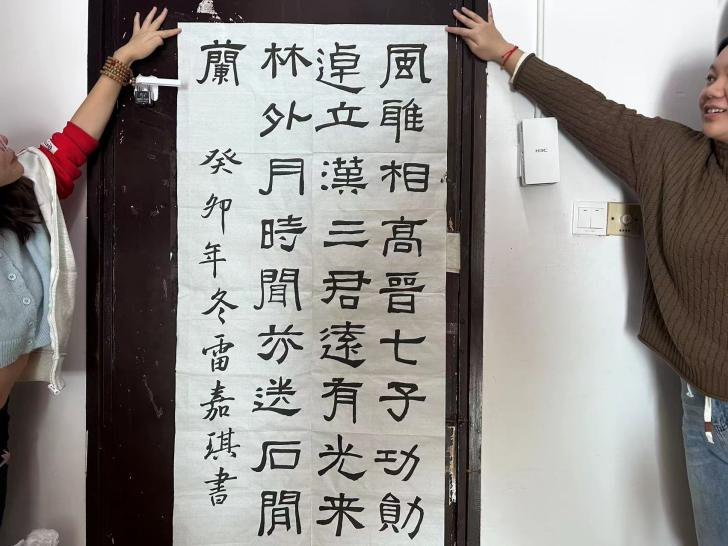 風雅相高晉七子功勛
逴立漢三君遠有光来
林外月時聞芬送石閒
蘭
癸卯年冬雷嘉琪書
H3C